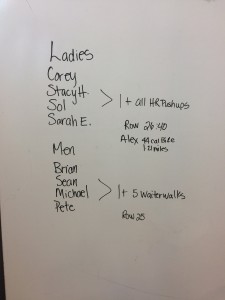 Ladies
Corey
Stacy H.
Sol
Sarah E.
> 1 + all HR Pushups
Row 26:40
Alex 44 calbike
1 2 minutes
Men
Brian
Sean
Michael
Pete
> 1 + 5 Waiter walks
Row 25